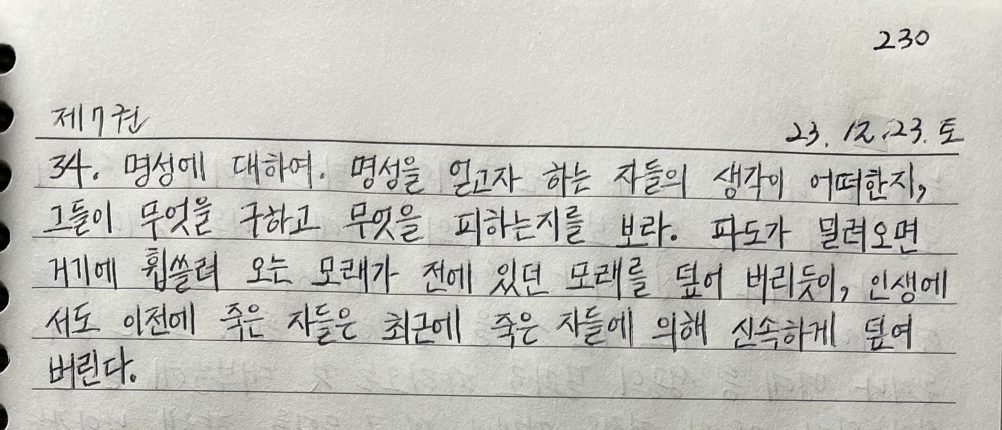 230
제7권
23. 12. 23. 토
34. 명성에 대하여. 명성을 얻고자 하는 자들의 생각이 어떠한지,
그들이 무엇을 구하고 무엇을 피하는지를 보라. 파도가 밀려오면
거기에 휩쓸려 오는 모래가 전에 있던 모래를 덮어 버리듯이, 인생에
서도 이전에 죽은 자들은 최근에 죽은 자들에 의해 신속하게 덮여
버린다.